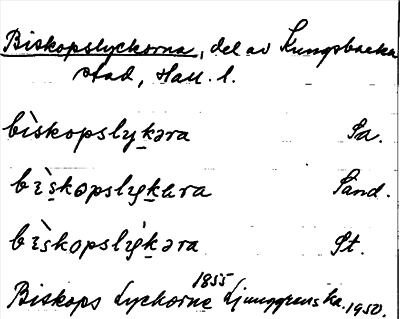 Biskopslyckorna, del av Kungsbacka
stad, Hall. l.
bìskopslyk̲əra Sa.
bìs̲kopslyk̲ɐra Sand.
bìs̲kopslýk̲əra St.
1855
Biskops Lyckorne Ljunggrenska. 1950.